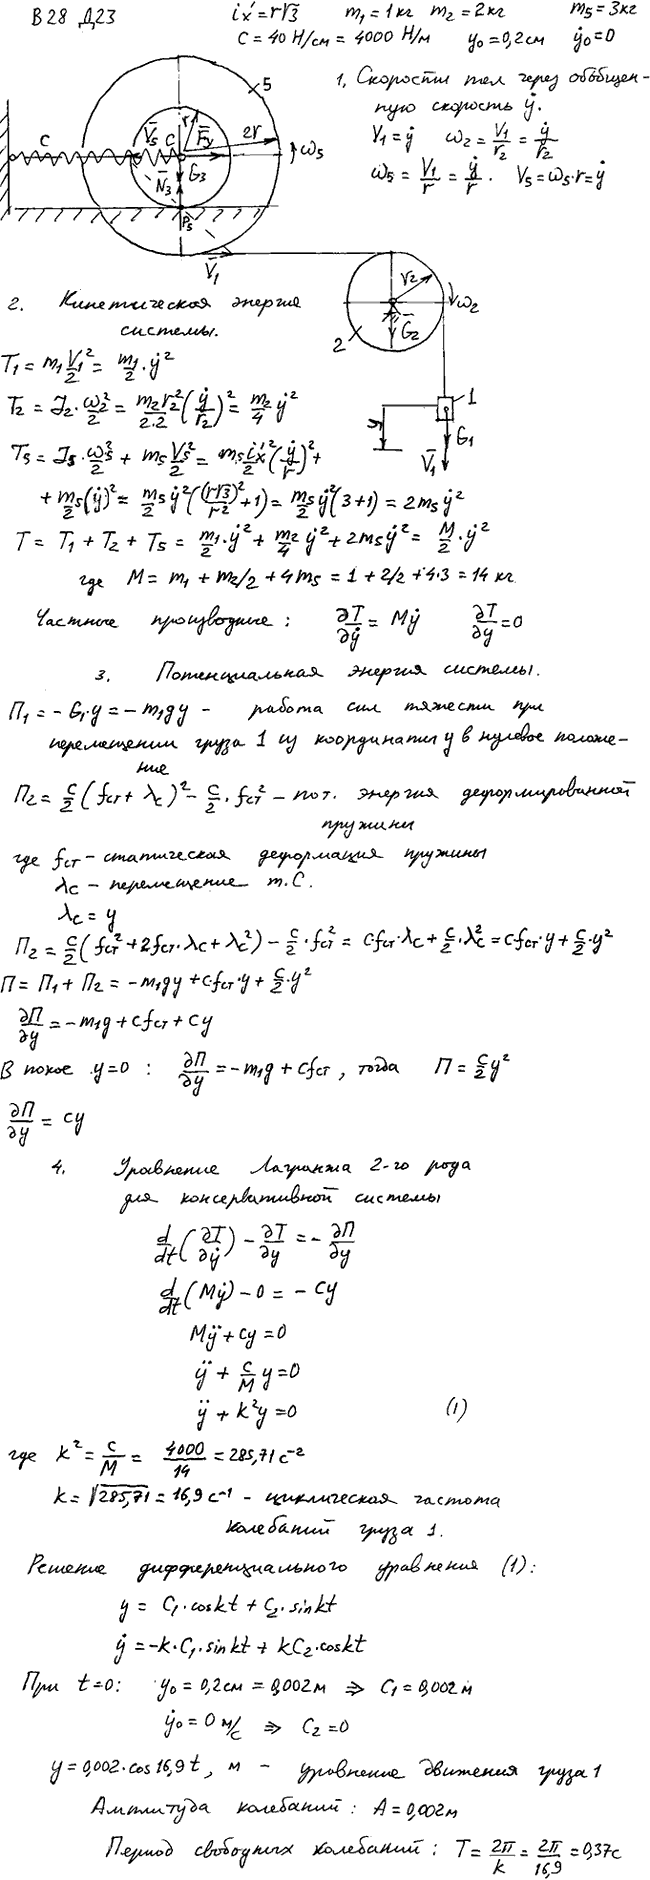 В 28 Д23 iх' = r√3 m₁ = 1 кг m₂ = 2 кг m₅ = 3 кг
C = 40 Н/см = 4000 Н/м y₀ = 0,2 см ẏ₀ = 0
1, Скорости тел через обобщен-
ную скорость ẏ.
V₁ = ẏ ω₂ = V₁/r₂ = ẏ/r₂
ω₅ = V₁/r = ẏ/r. V₅ = ω₅·r = ẏ
5
C V̅₅ C r F̅y 2r ω₅
N̅₃ G̅₃
P₅
V̅₁
r₂ ω₂
2 G̅₂
1
y G̅₁
V̅₁
2. Кинетическая энергия
системы.
T₁ = m₁V₁²/2 = m₁/2·ẏ²
T₂ = J₂·ω₂²/2 = m₂r₂²/2·2 (ẏ/r₂)² = m₂/4 ẏ²
T₅ = J₅·ω₅²/2 + m₅V₅²/2 = m₅iх'²/2 (ẏ/r)² +
+ m₅/2 (ẏ)² = m₅/2 ẏ² ((r√3)²/r² + 1) = m₅/2 ẏ² (3+1) = 2m₅ẏ²
T = T₁ + T₂ + T₅ = m₁/2·ẏ² + m₂/4 ẏ² + 2m₅ẏ² = M/2·ẏ²
где M = m₁ + m₂/2 + 4m₅ = 1 + 2/2 + 4·3 = 14 кг
Частные производные: ∂T/∂ẏ = Mẏ ∂T/∂y = 0
3. Потенциальная энергия системы.
П₁ = -G₁·y = -m₁gy - работа сил тяжести при
перемещении груза 1 из координаты y в нулевое положе-
ние
П₂ = C/2 (fст + λc)² - C/2·fст² - пот. энергия деформированной
пружины
где fст - статическая деформация пружины
λc - перемещение т.С.
λc = y
П₂ = C/2 (fст² + 2fст·λc + λc²) - C/2·fст² = Cfст·λc + C/2·λc² = Cfст·y + C/2·y²
П = П₁ + П₂ = -m₁gy + Cfст·y + C/2·y²
∂П/∂y = -m₁g + Cfст + Cy
В покое y=0: ∂П/∂y = -m₁g + Cfст, тогда П = C/2 y²
∂П/∂y = Cy
4. Уравнение Лагранжа 2-го рода
для консервативной системы
d/dt (∂T/∂ẏ) - ∂T/∂y = -∂П/∂y
d/dt (Mẏ) - 0 = -Cy
Mÿ + Cy = 0
ÿ + C/M y = 0
ÿ + k²y = 0 (1)
где k² = C/M = 4000/14 = 285,71 с⁻²
k = √285,71 = 16,9 с⁻¹ - циклическая частота
колебаний груза 1.
Решение дифференциального уравнения (1):
y = C₁·coskt + C₂·sinkt
ẏ = -k·C₁·sinkt + kC₂·coskt
При t=0: y₀ = 0,2см = 0,002м ⇒ C₁ = 0,002м
ẏ₀ = 0 м/с ⇒ C₂ = 0
y = 0,002·cos16,9t, м - уравнение движения груза 1
Амплитуда колебаний: A = 0,002м
Период свободных колебаний: T = 2π/k = 2π/16,9 = 0,37с